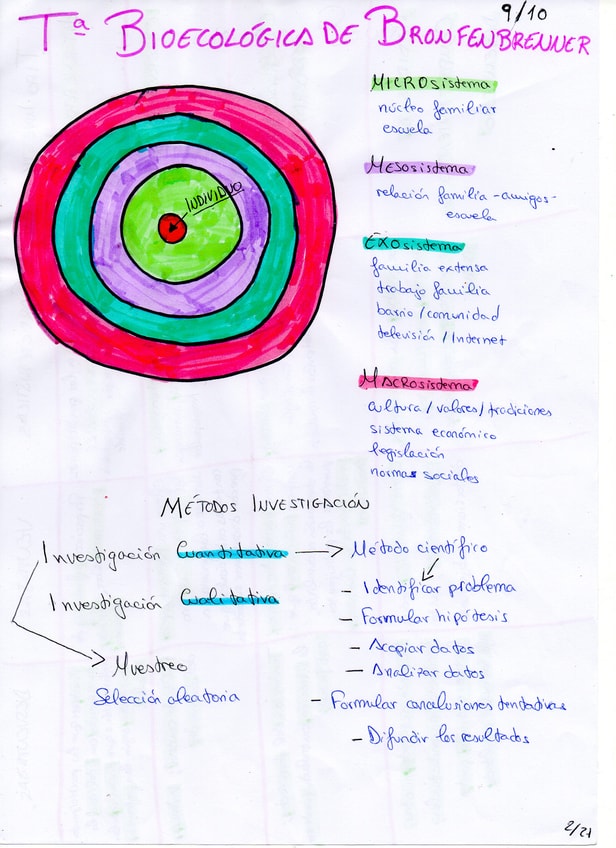 9/10
Tª BIOECOLÓGICA DE BRONFENBRENNER
INDIVIDUO
MICROsistema
núcleo familiar
escuela
MESOsistema
relación familia - amigos -
escuela
EXOsistema
familia extensa
trabajo familia
barrio / comunidad
televisión / Internet
MACROsistema
cultura / valores / tradiciones
sistema económico
legislación
normas sociales
MÉTODOS INVESTIGACIÓN
Investigación Cuantitativa
Investigación Cualitativa
Muestreo
Selección aleatoria
Método científico
- Identificar problema
- Formular hipótesis
- Acopiar datos
- Analizar datos
- Formular conclusiones tentativas
- Difundir los resultados
2/21